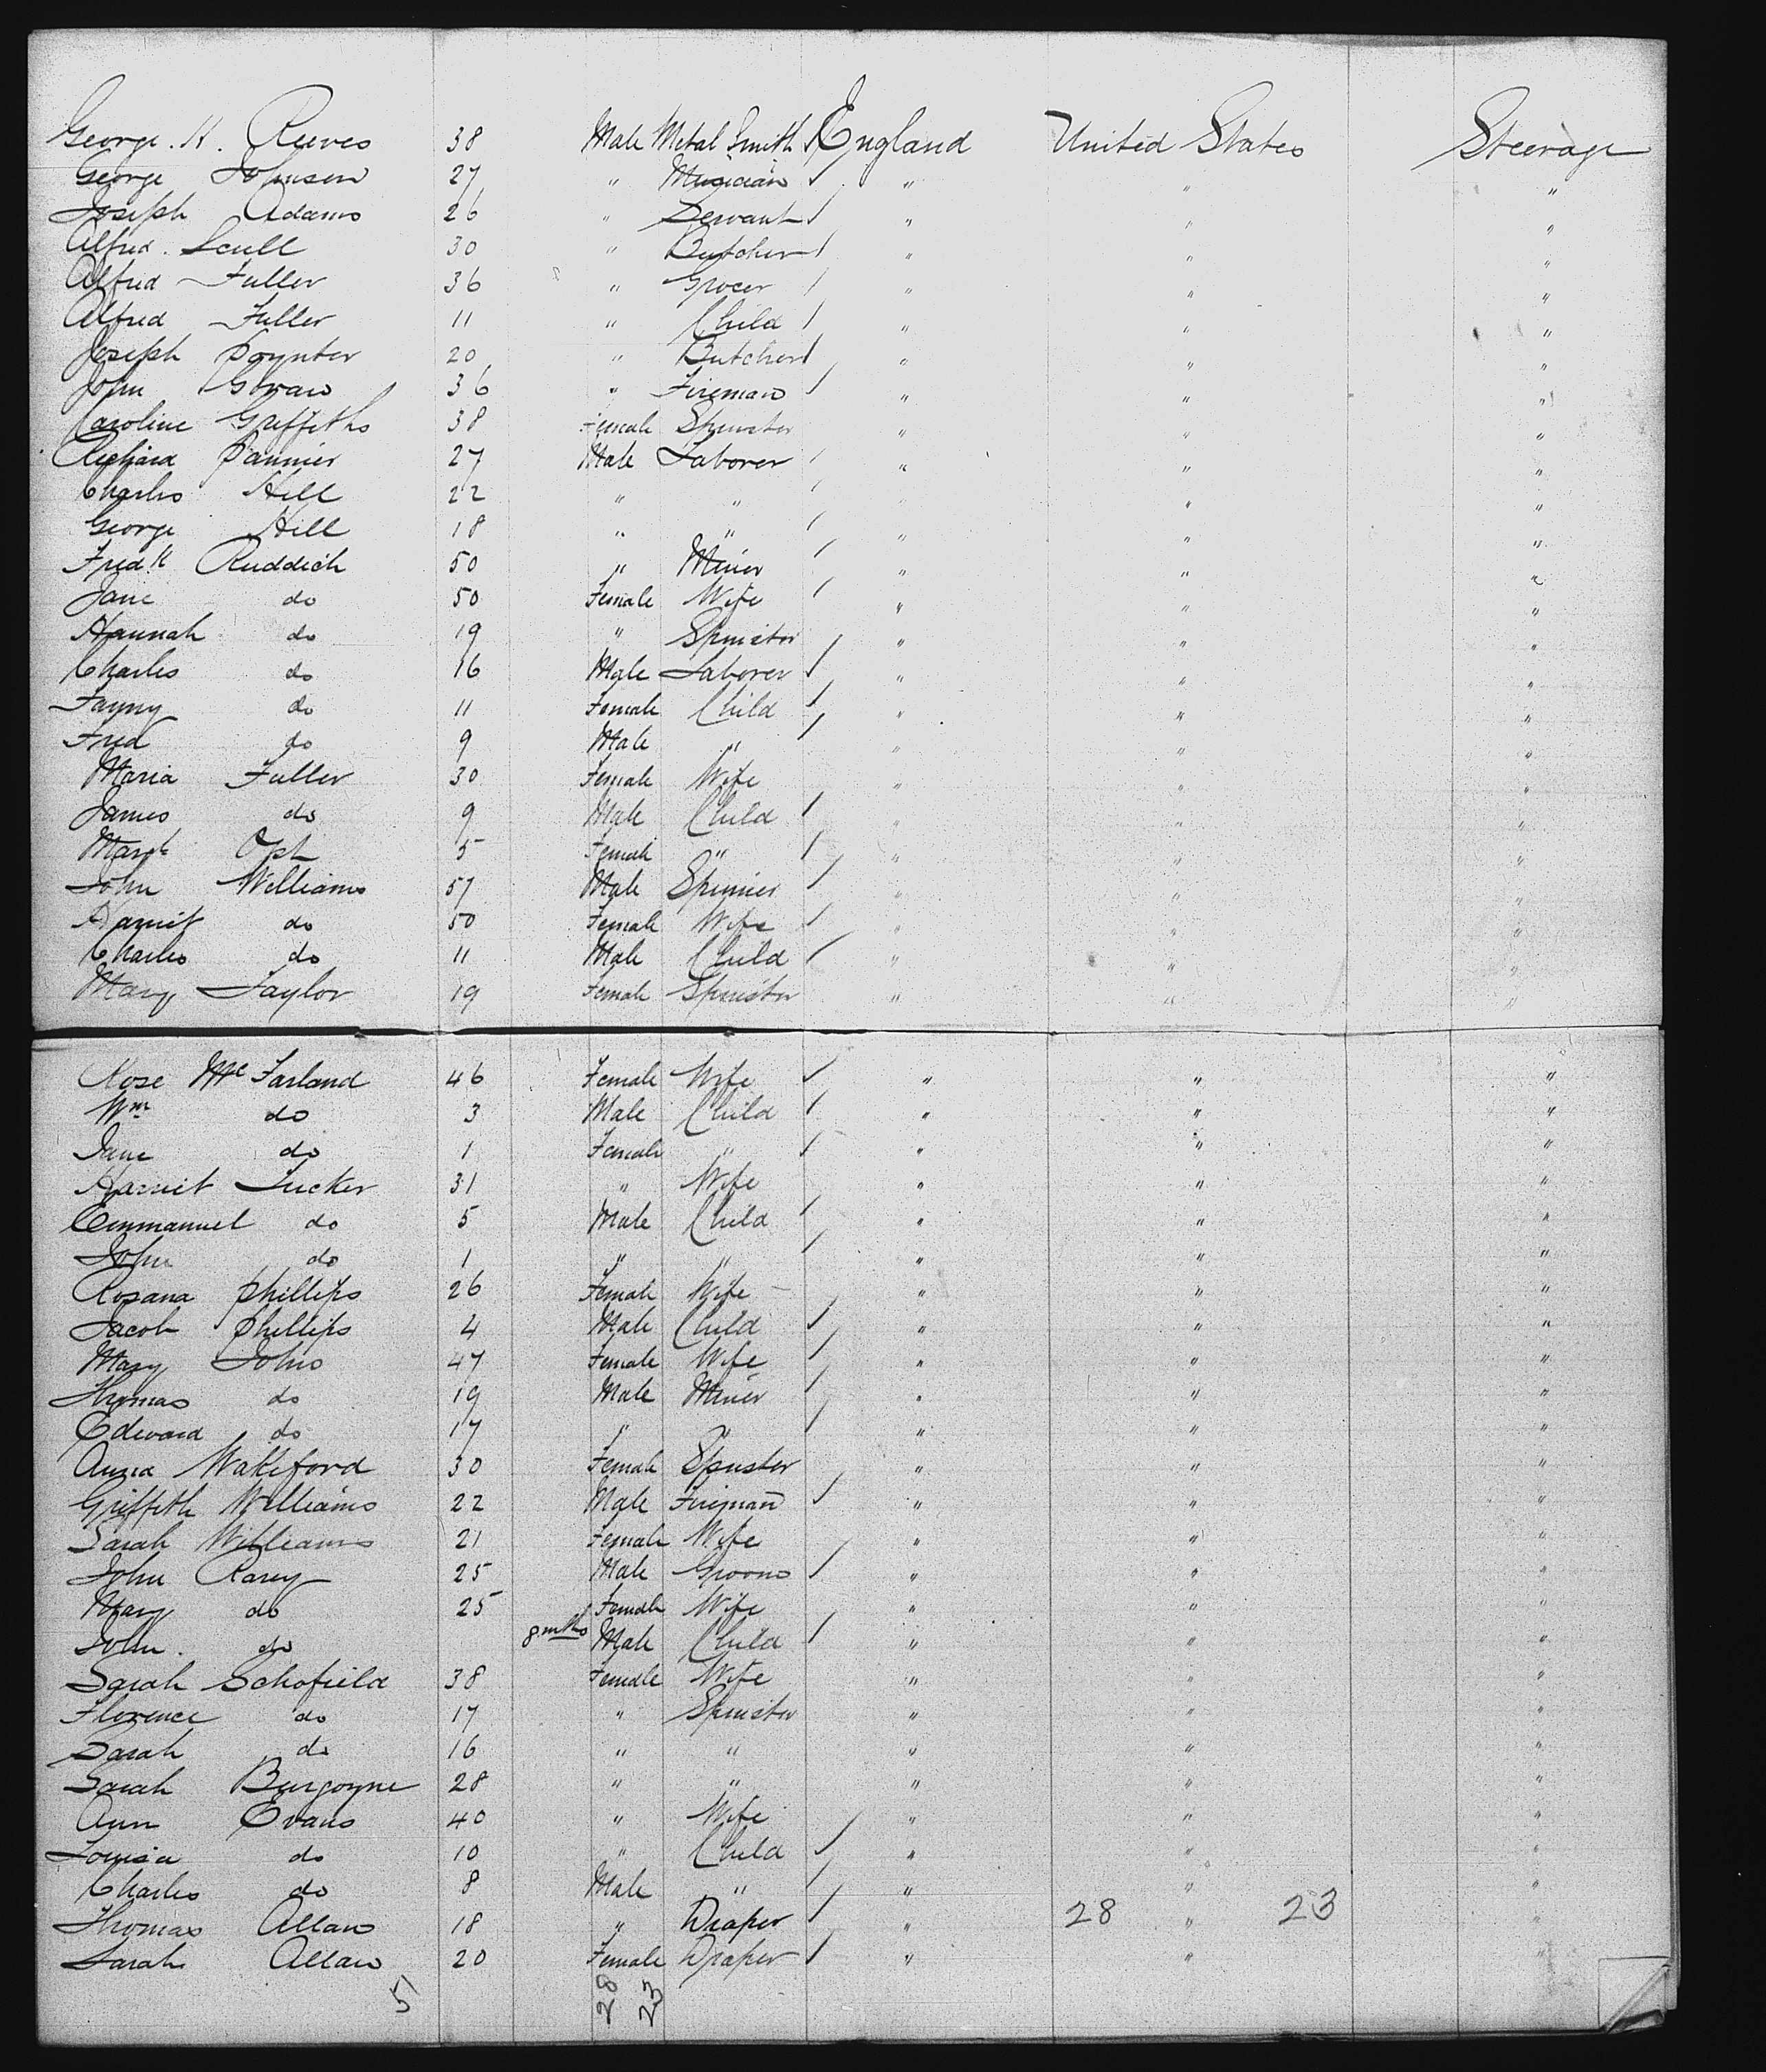 George. H. Reeves 38 Male Metal Smith England United States Steerage
George Johnson 27 " Musician " " "
Joseph Adams 26 " Servant " " "
Alfred. Scull 30 " Butcher " " "
Alfred Fuller 36 " Grocer " " "
Alfred Fuller 11 " Child " " "
Joseph Poynter 20 " Butcher " " "
John 36 " Fireman " " "
Caroline Griffiths 38 Female Spinster " " "
Richard 27 Male Laborer " " "
Charles Hill 22 " " " " "
George Hill 18 " " " " "
Fredk Ruddick 50 " Miner " " "
Jane do 50 Female Wife " " "
Hannah do 19 " Spinster " " "
Charles do 16 Male Laborer " " "
Fanny do 11 Female Child " " "
Fred do 9 Male " " " "
Maria Fuller 30 Female Wife " " "
James do 9 Male Child " " "
5 Female " " " "
John Williams 57 Male Spinner " " "
Harriet do 50 Female Wife " " "
Charles do 11 Male Child " " "
Mary Taylor 19 Female Spinster " " "
Rose McFarland 46 Female Wife " " "
Wm do 3 Male Child " " "
Jane do 1 Female " " " "
Harriet Tucker 31 " Wife " " "
Emmanuel do 5 Male Child " " "
John do 1 " " " " "
Rosana Phillips 26 Female Wife " " "
Jacob Phillips 4 Male Child " " "
Mary Johns 47 Female Wife " " "
Thomas do 19 Male Miner " " "
Edward do 17 " " " " "
Anna Wakeford 30 Female Spinster " " "
Griffith Williams 22 Male Fireman " " "
Sarah Williams 21 Female Wife " " "
John Rarey 25 Male Groom " " "
Mary do 25 Female Wife " " "
John. do 8 mths Male Child " " "
Sarah Schofield 38 Female Wife " " "
Florence do 17 " Spinster " " "
Sarah do 16 " " " " "
Sarah Burgoyne 28 " " " " "
Ann Evans 40 " Wife " " "
Louisa do 10 " Child " " "
Charles do 8 Male " " " "
Thomas Allan 18 " Draper " 28 " 23 "
Sarah Allan 20 Female Draper " " "
5 28 23